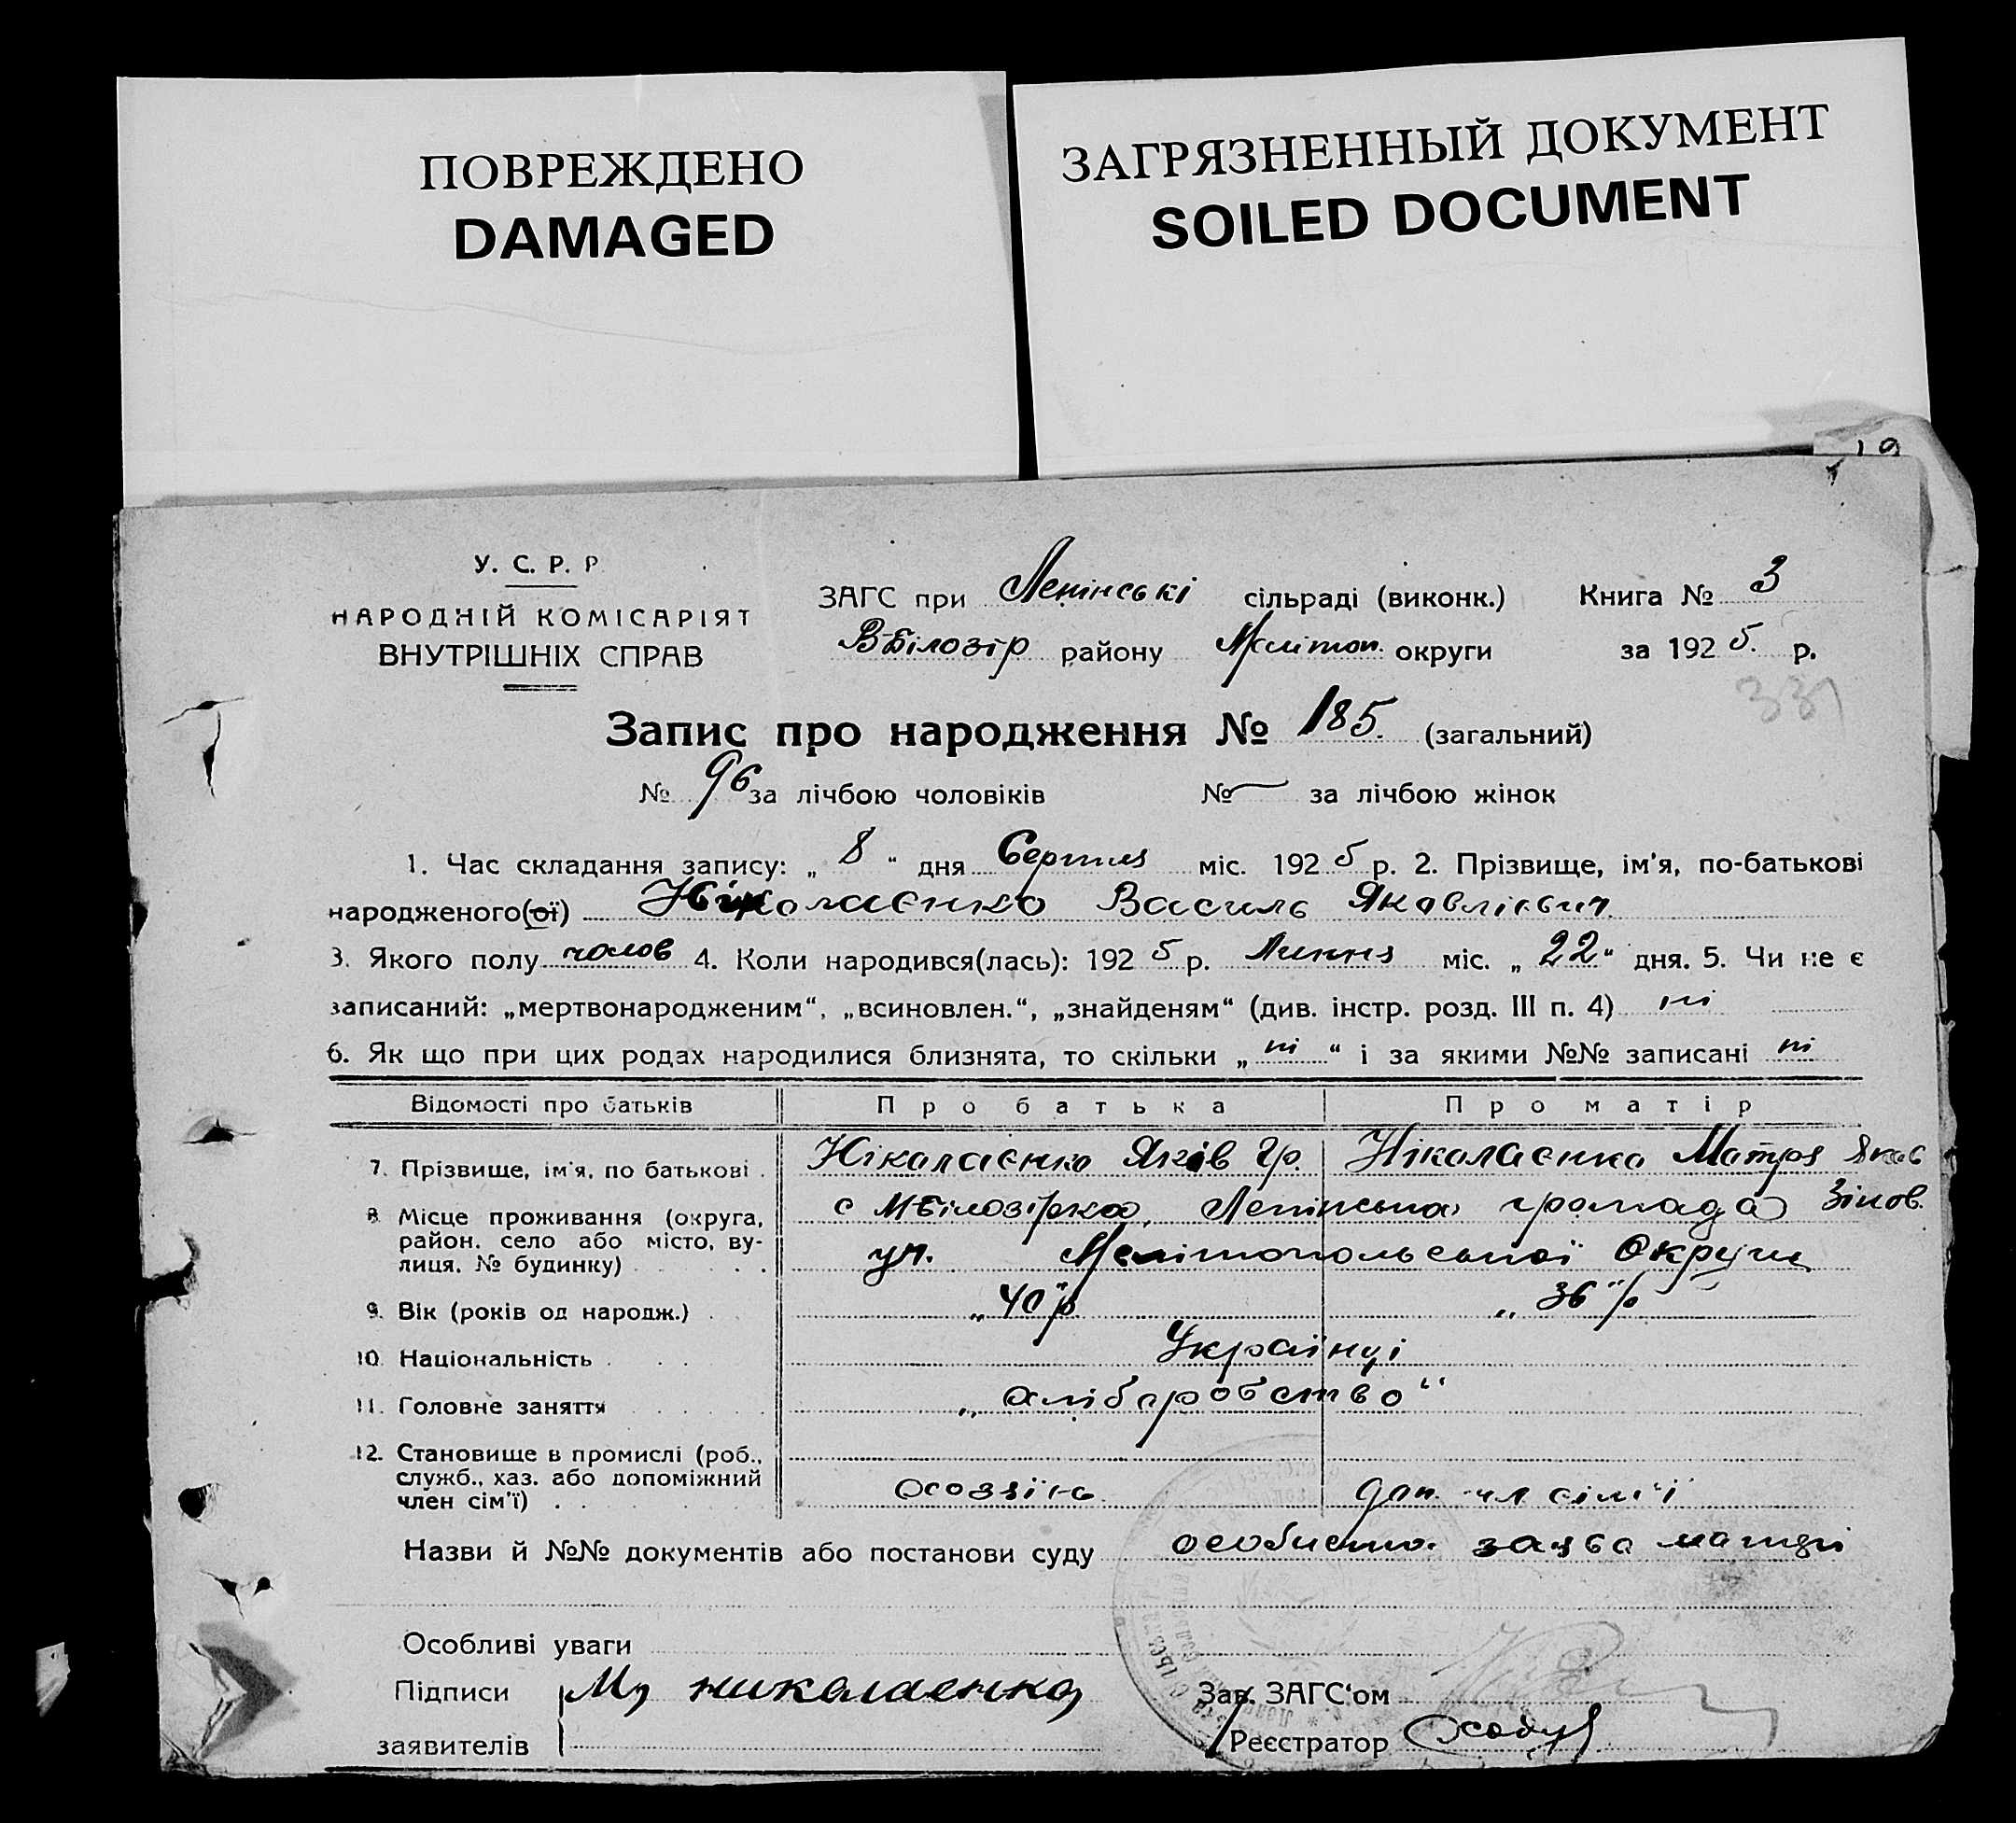 ПОВРЕЖДЕНО
DAMAGED
ЗАГРЯЗНЕННЫЙ ДОКУМЕНТ
SOILED DOCUMENT
19
У. С. Р. Р
НАРОДНІЙ КОМІСАРІЯТ
ВНУТРІШНІХ СПРАВ
ЗАГС при Ленінські сільраді (виконк.) Книга № 3
В-Білозір району Мелітоп. округи за 1925. р.
331
Запис про народження № 185. (загальний)
№ 96 за лічбою чоловіків № — за лічбою жінок
1. Час складання запису: „ 8 “ дня Серпня міс. 1925 р. 2. Прізвище, ім'я, по-батькові
народженого(ої) Ніколаєнко Василь Яковлієвич
3. Якого полу чолов 4. Коли народився(лась): 1925 р. Липня міс. „ 22 “ дня. 5. Чи не є
записаний: „мертвонародженим“, „всиновлен.“, „знайденям“ (див. інстр. розд. III п. 4) ні
6. Як що при цих родах народилися близнята, то скільки „ ні “ і за якими №№ записані ні
Відомості про батьків Про батька Про матір
7. Прізвище, ім'я, по батькові . Ніколаєнко Яків Гр. Ніколаєнко Мотря Яков
8. Місце проживання (округа, с МБілозірка, Ленінська громада Зінов.
район, село або місто, ву-
лиця, № будинку) . . . ул. Мелітопольської Округи
9. Вік (років од народж.) . „40"р „36"р
10. Національність . . . Українці
11. Головне заняття . . . „хліборобство“
12. Становище в промислі (роб.,
служб., хаз. або допоміжний
член сім'ї) . . хозяїнь доп. чл сім'ї
Назви й №№ документів або постанови суду особиста заява матері
Особливі уваги
Підписи Мя николаенко
заявителів
Зав. ЗАГС'ом
Реєстратор